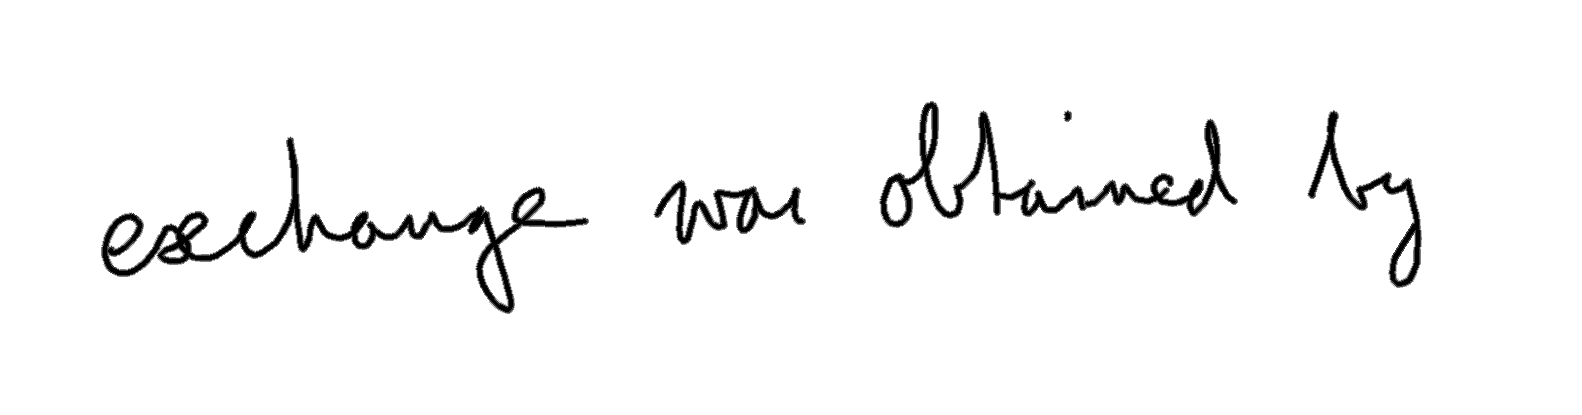 exchange was obtained by